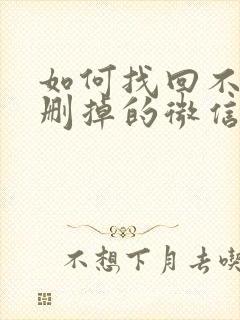 如何找回不
删掉的微信
不想下月去喫